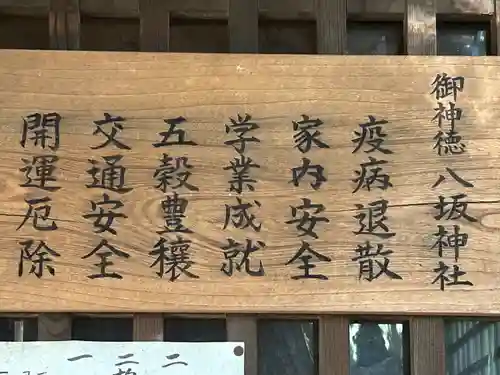 御神徳 八坂神社
疫病退散
家内安全
学業成就
五穀豊穣
交通安全
開運厄除
二
二
一